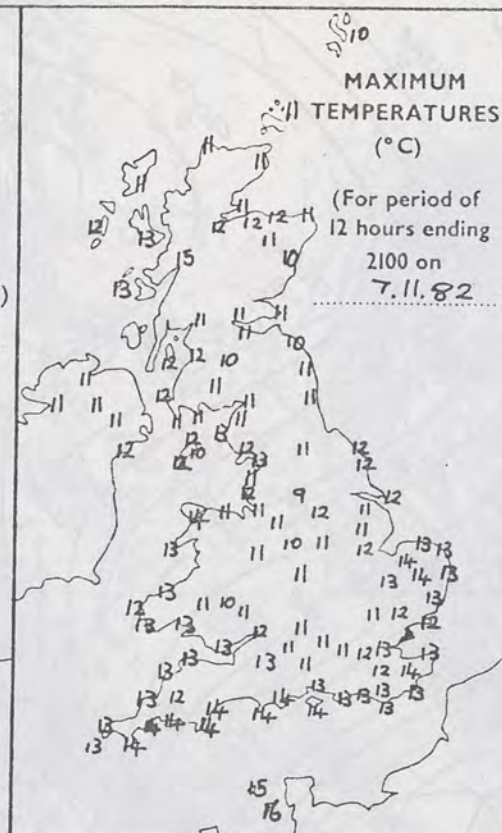 10
MAXIMUM
11 TEMPERATURES
(°C)
11
11
11
(For period of
12 hours ending
2100 on
7.11.82
12
13
11
12 12 12 11
11
15
10
13
)
11
11 11
11
10
12 12
10
11
11
12
11
11
11 11 11
11
11 11
11
13
12
10
12
12
12
13
11
12
12
11
12
9
12
14 11 11
12
11
11
11
13
10 11
12
13 13
11
14
14
13
13
11
13
13
12
11 10
11
11 12
13
13
12
12
11
13
11
11
11
12
13
13
13
13
11
12
14
13
12
14
13
13
13
13
13
14
14
14
14
14
14
13
13
13
14
15
16